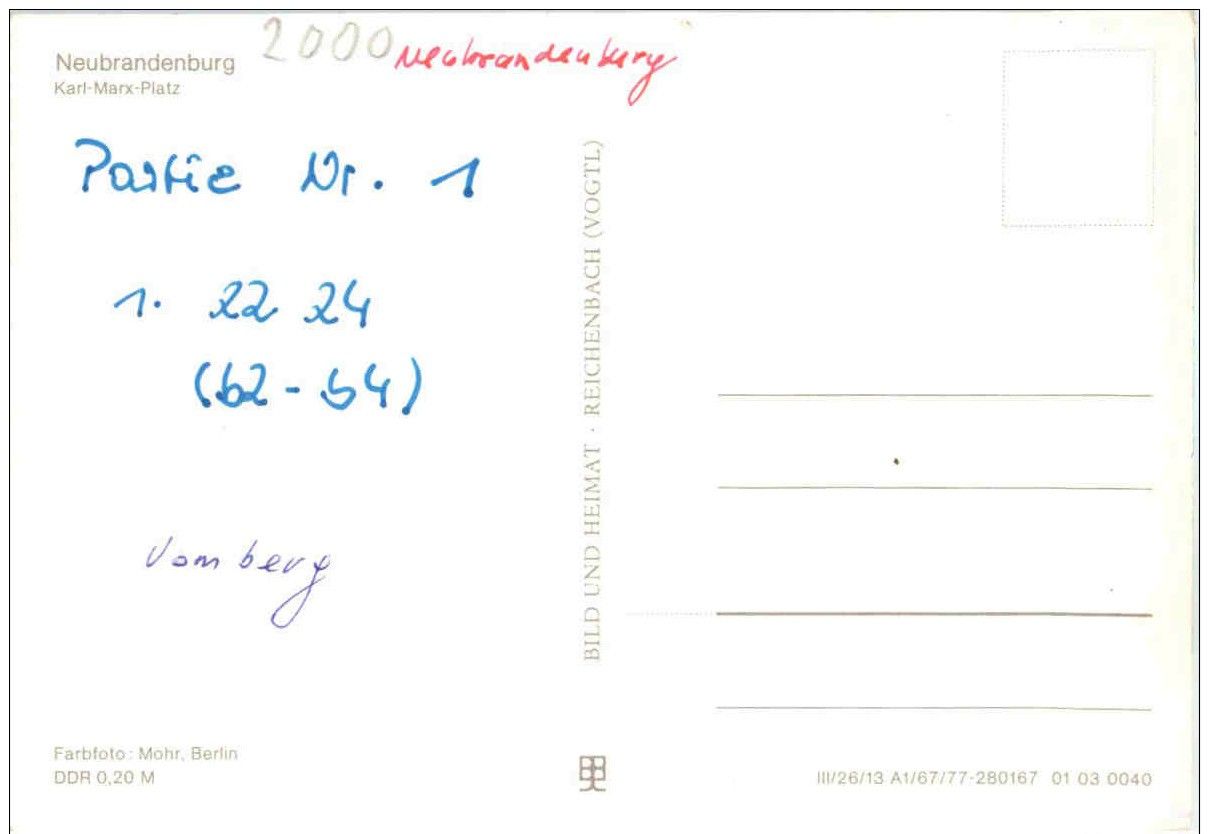 Neubrandenburg
Karl-Marx-Platz
2000 Neubrandenburg
Partie Nr. 1
1. 22 24
(b2-b4)
Vomberg
BILD UND HEIMAT · REICHENBACH (VOGTL)
Farbfoto: Mohr, Berlin
DDR 0,20 M
III/26/13 A1/67/77-280167 01 03 0040